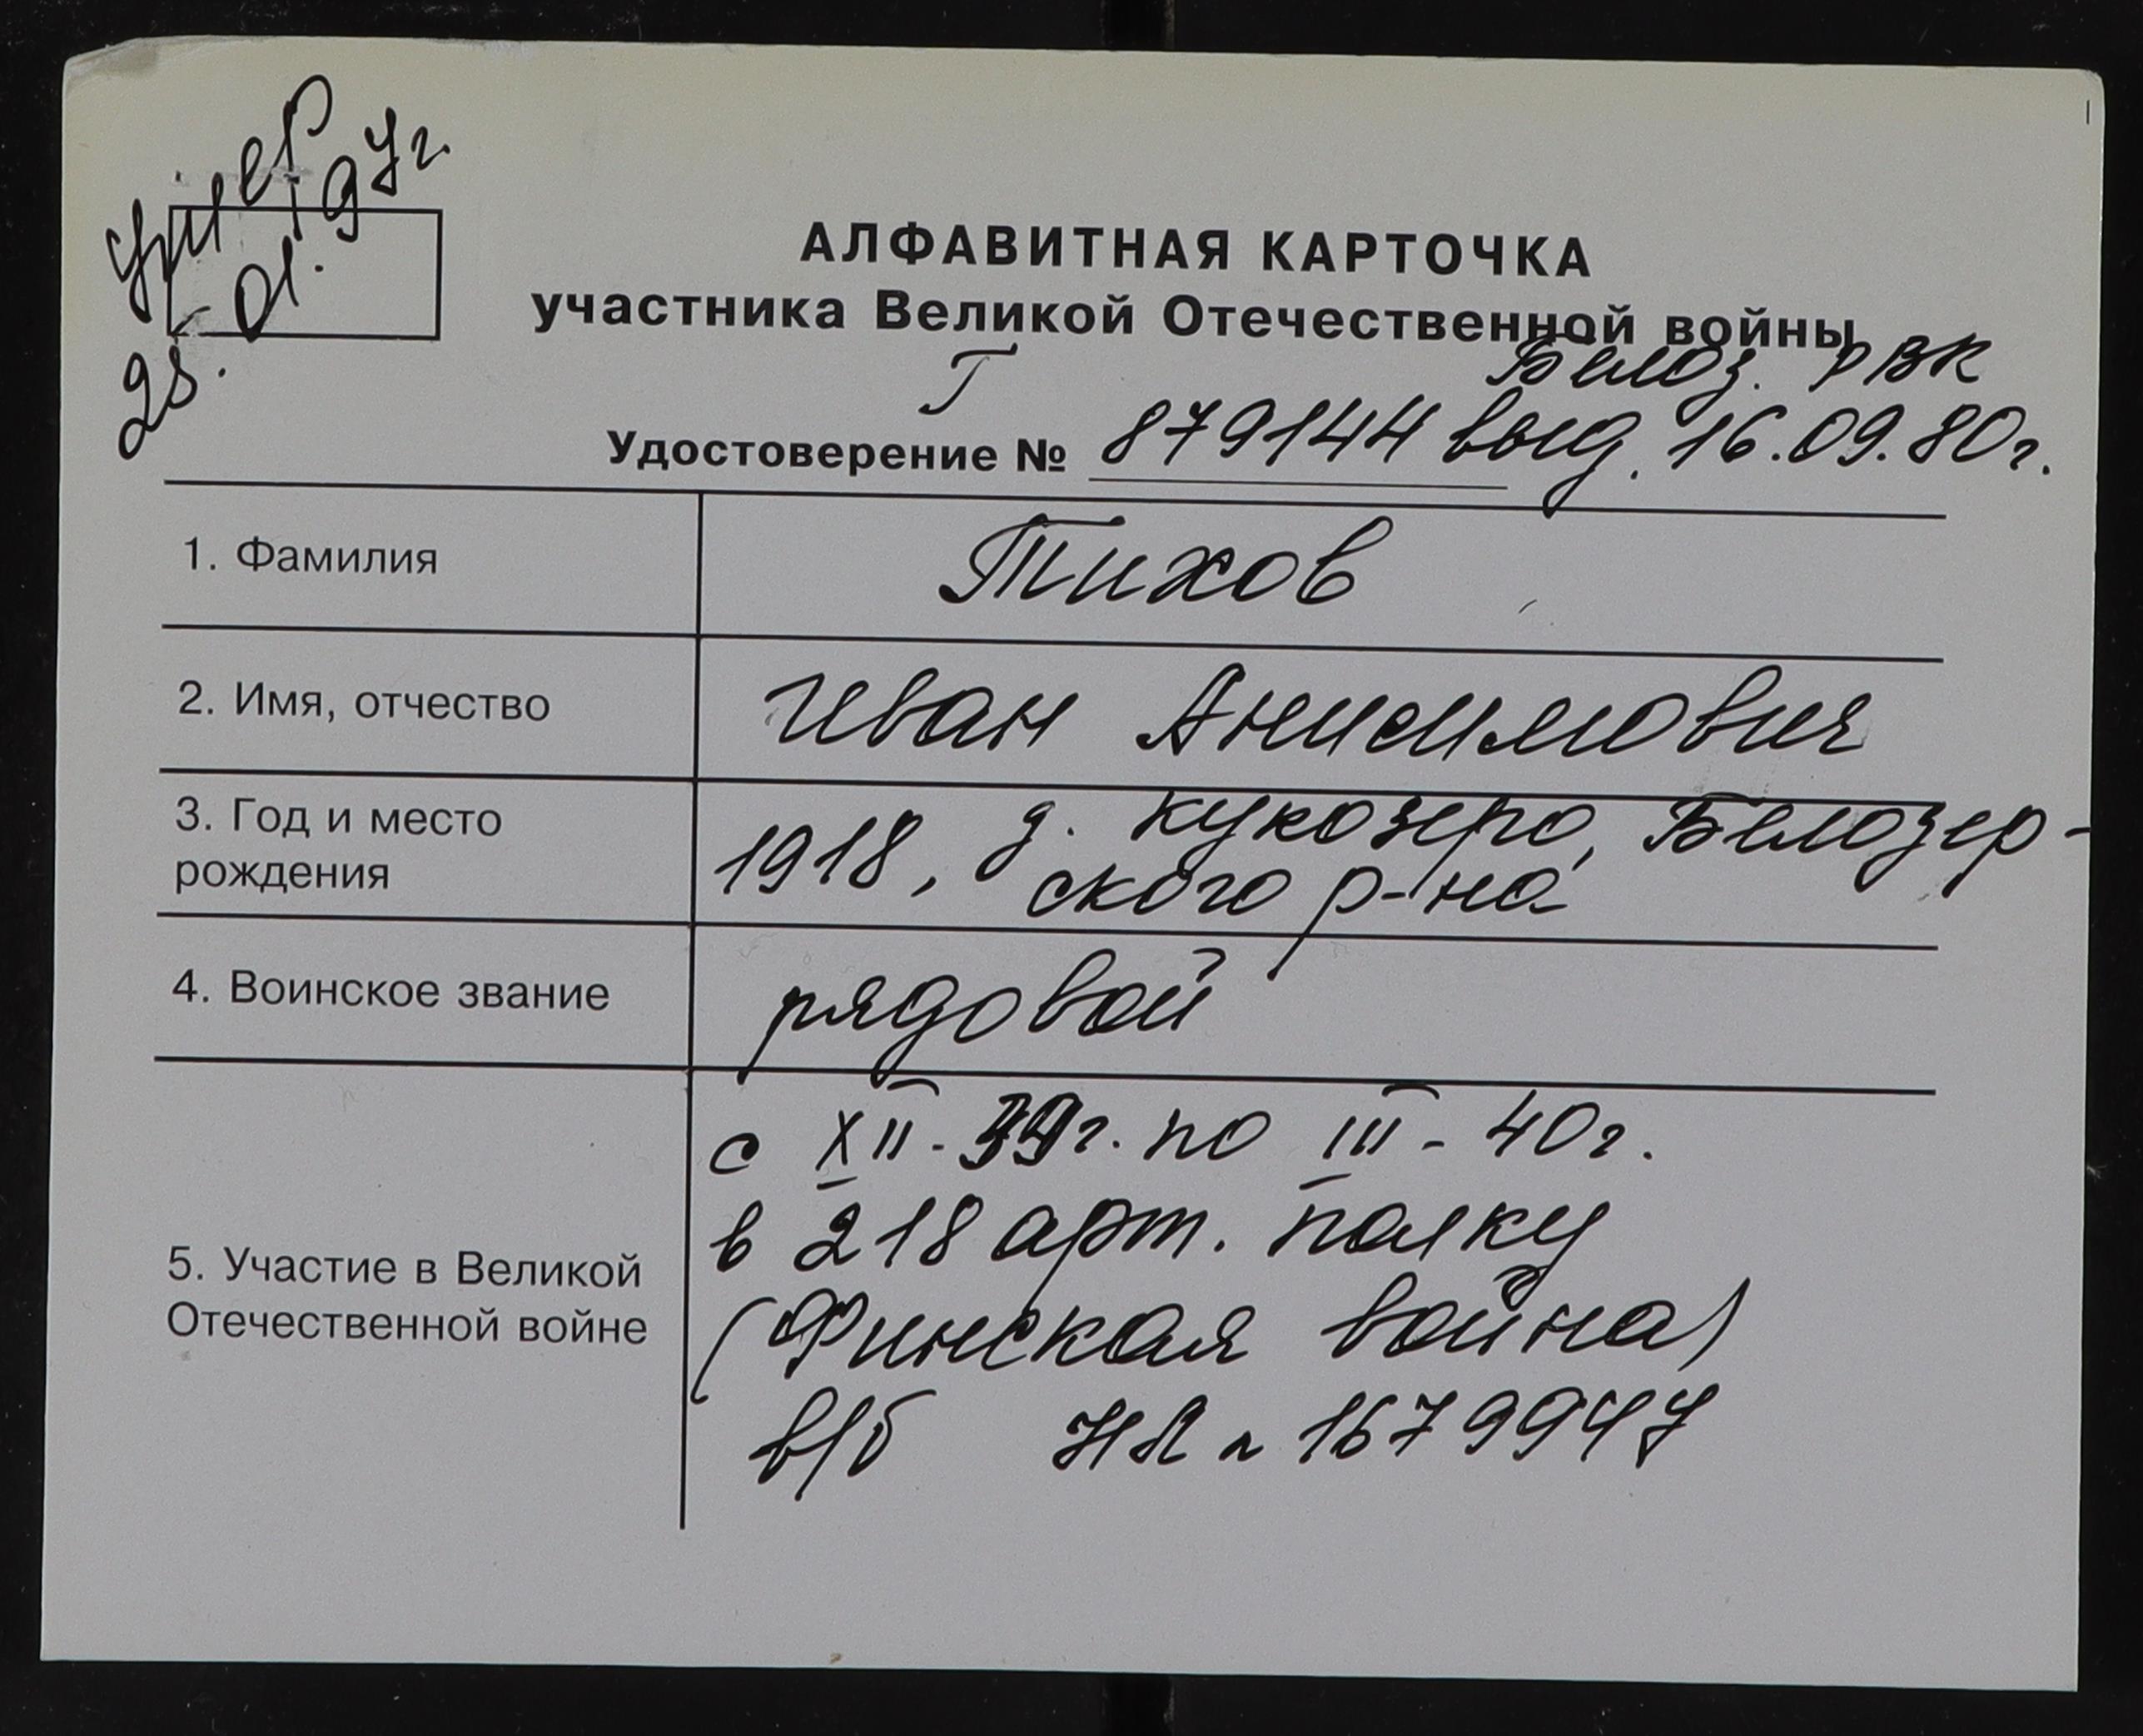 умер
25. 01. 1994г.
АЛФАВИТНАЯ КАРТОЧКА
участника Великой Отечественной войны
Белоз. РВК
Удостоверение № Г 879144 выд. 16.09.80г.
1. Фамилия Тихов
2. Имя, отчество Иван Анисимович
3. Год и место рождения 1918, д. Кукозеро, Белозер-
ского р-на
4. Воинское звание рядовой
5. Участие в Великой Отечественной войне
с XII-39г. по III-40г.
в 218 арт. полку
(Финская война)
в/б НЛ